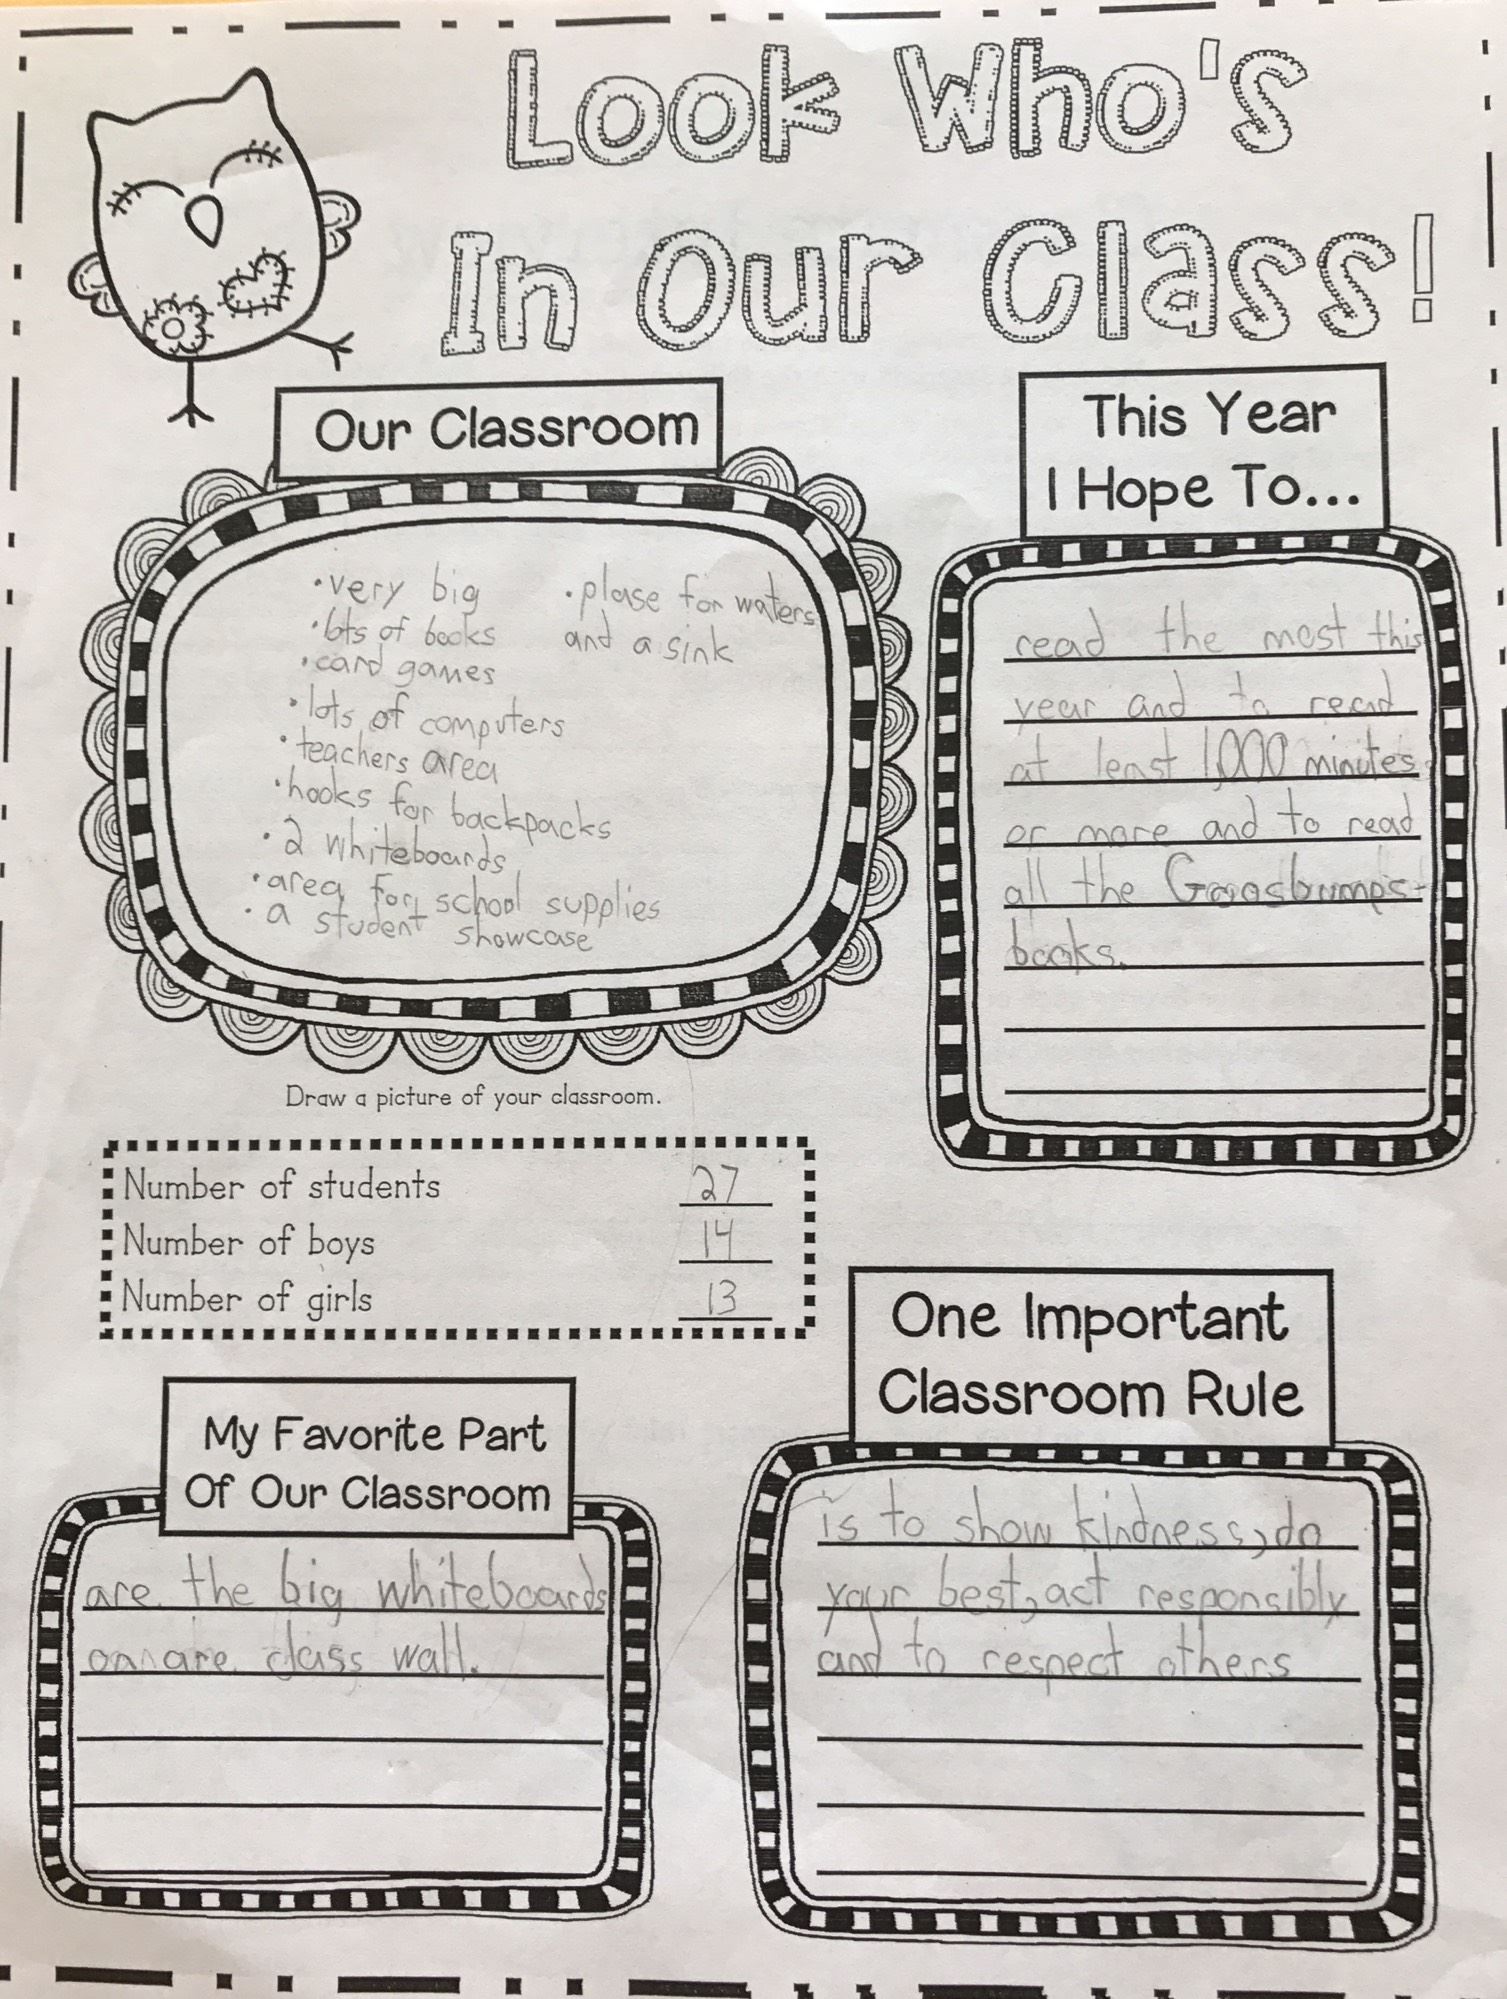 Look Who's
In Our Class!
Our Classroom
• very big
• lots of books
• card games
• lots of computers
• teachers area
• hooks for backpacks
• 2 whiteboards
• area for school supplies
• a student showcase
• plase for waters
and a sink
Draw a picture of your classroom.
This Year
I Hope To...
read the most this
year and to read
at least 1,000 minutes
or more and to read
all the Goosbumps
books.
Number of students 27
Number of boys 14
Number of girls 13
My Favorite Part
Of Our Classroom
are the big whiteboards
on are class wall.
One Important
Classroom Rule
is to show kindness, do
your best, act responsibly
and to respect others